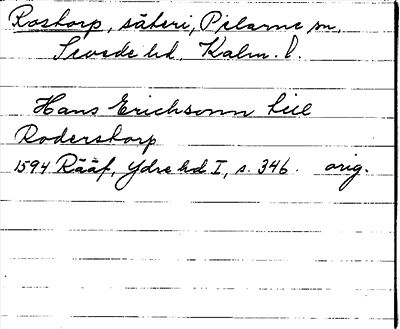 Rostorp, säteri, Pelarne sn,
Sevede hd, Kalm. l.
Hans Erichsonn tiil
Roderstorp
1594 Rääf, Ydre hd I, s. 346. orig.